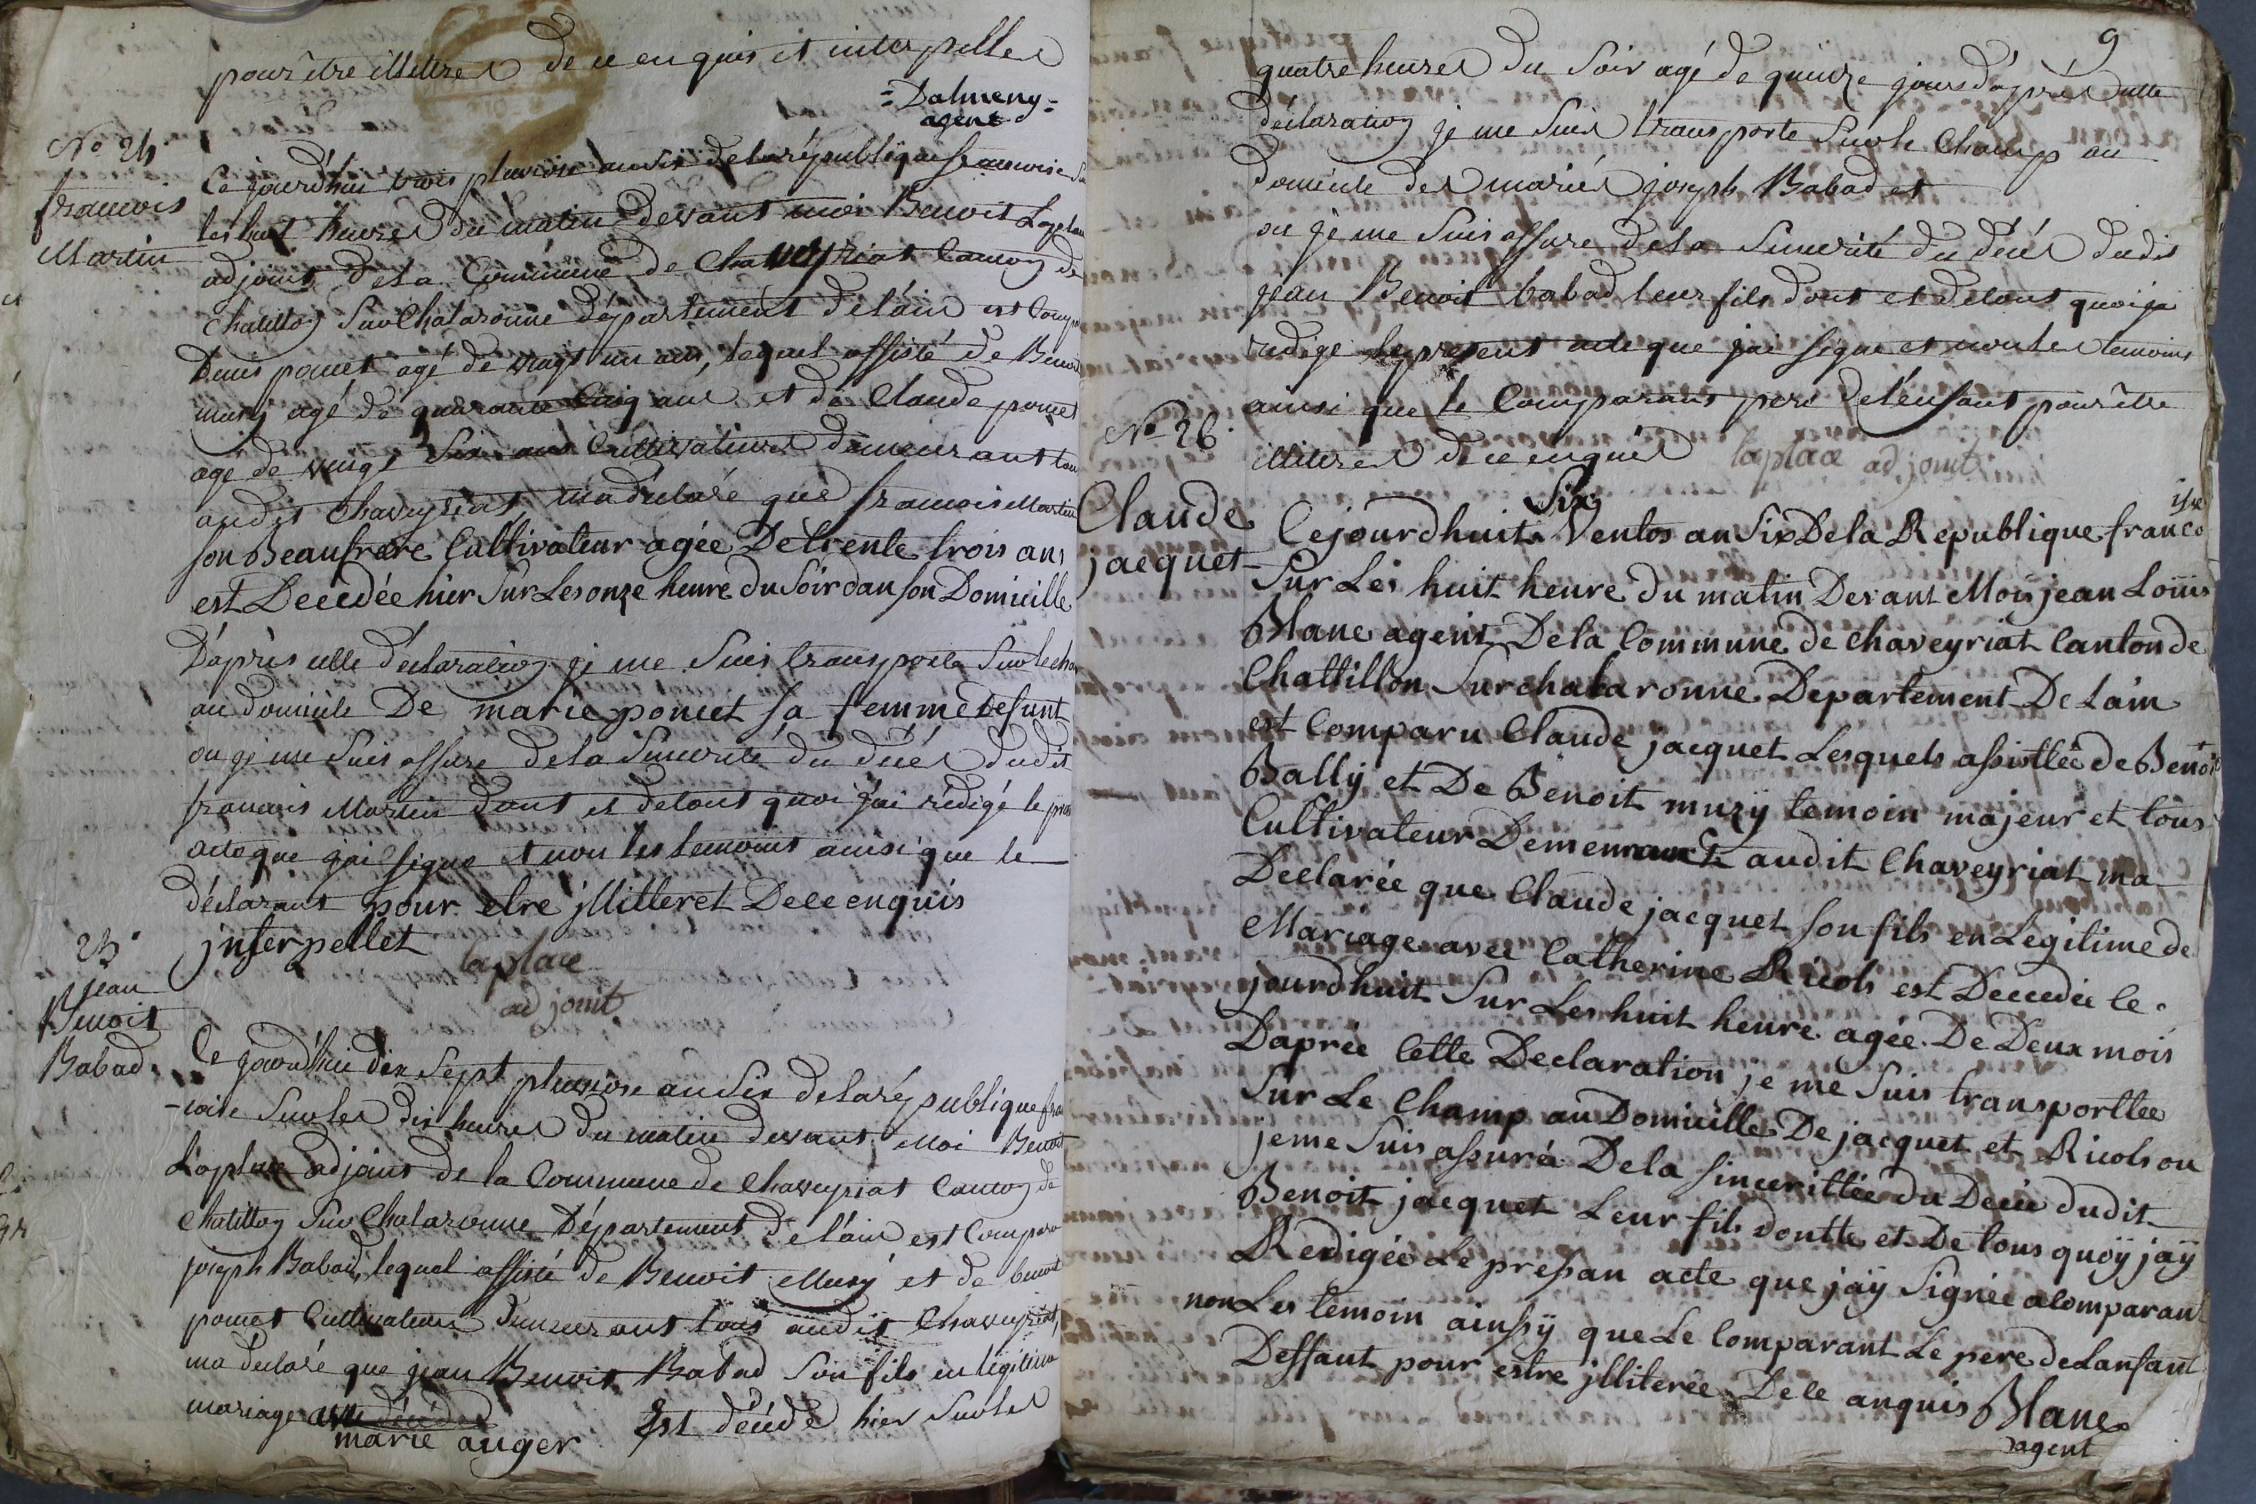 pour être illittres de ce enquis et interpelles
= Dalmeny =
agent
No 24
francois
Martin
Ce jourd'hui trois pluviose an six de la république francoise Sur
les huit heures du matin devant moi Benoit Laplace
adjoint de la Commune de Chaveyriat Canton de
Chatillon Sur Chalaronne département de l'ain est Comparu
Denis poncet agé de vingt un ans, lequel assisté de Benoit
mury agé de quarante Cinq ans et de Claude poncet
agé de vingt Six ans Cultivateurs demeurants tous
audit Chaveyriat, ma déclaré que francois Martin
son Beaufrere Cultivateur agée De trente trois ans
est Decedée hier Sur Les onze heure du Soir dan son Domicille
D'après cette déclaration je me Suis transporté Sur le champ
au domicile De marie poncet sa femme Defunt
ou je me Suis assuré de la Sincerité du décés dudit
francois Martin dont et de tout quoi j'ai rédigé le présent
acte que j'ai signé et non les temoins ainsi que le
déclarant pour etre jllitteret De ce enquis
jnterpellet
laplace
adjoint
25
jean
Benoit
Babad
Ce jourd'hui dix Sept pluviose an Six de la république fran
-coise Sur les dix heures du matin devant Moi Benoit
Laplace adjoint de la Commune de Chaveyriat Canton de
Chatillon Sur Chalaronne Département de l'ain est Comparu
joseph Babad, lequel assisté de Benoit Mury et de benoit
poncet Cultivateurs demeurants tous audit Chaveyriat,
ma déclaré que jean Benoit Babad Son fils en légitime
mariage avec décédé
marie auger Est décédé hier Sur les
9
quatre heures du Soir agé de quinze jours d'après cette
déclaration je me Suis transporté Sur le Champ au
domicile des mariés joseph Babad et
ou je me Suis assuré de la Sincerité du décés dudit
jean Benoit babad leur fils dont et de tout quoi j'ai
redigé le present acte que j'ai signé et non les temoins
ainsi que le Comparant pere de l'enfant pour être
illittres de ce enquis laplace adjoint
No 26
Claude
jacquet
Six
Cejourdhuit Ventos an Six De la Republique franco
ise
Sur Les huit heure du matin Devant Moij jean Loüis
Blanc agent De la Commune de chaveyriat Canton de
Chattillon Sur chalaronne Departement De Lain
est Comparu Claude jacquet Lesquels assisttée de Benoit
Ballÿ et De Benoit murÿ temoin majeur et tous
Cultivateur Demeurant audit Chaveyriat ma
Declarée que Claude jacquet son fils en Legitime de
Mariage avec Catherine Ricols est Decedée le
jourdhuit Sur Les huit heure agée De Deux mois
Daprée Cette Declaration je me Suis transporttée
Sur Le Champ au Domicille De jacquet et Ricols ou
je me Suis assurá De la sincerittée du Decée dudit
Benoit jacquet Leur fils dontte et De tous quoÿ jaÿ
Redigée Le pressan acte que jaÿ Signée a Comparant
non Les temoin ainssÿ que Le Comparant Le pere de Lanfant
Deffaut pour estre jlliterée De ce anquis Blanc
agent